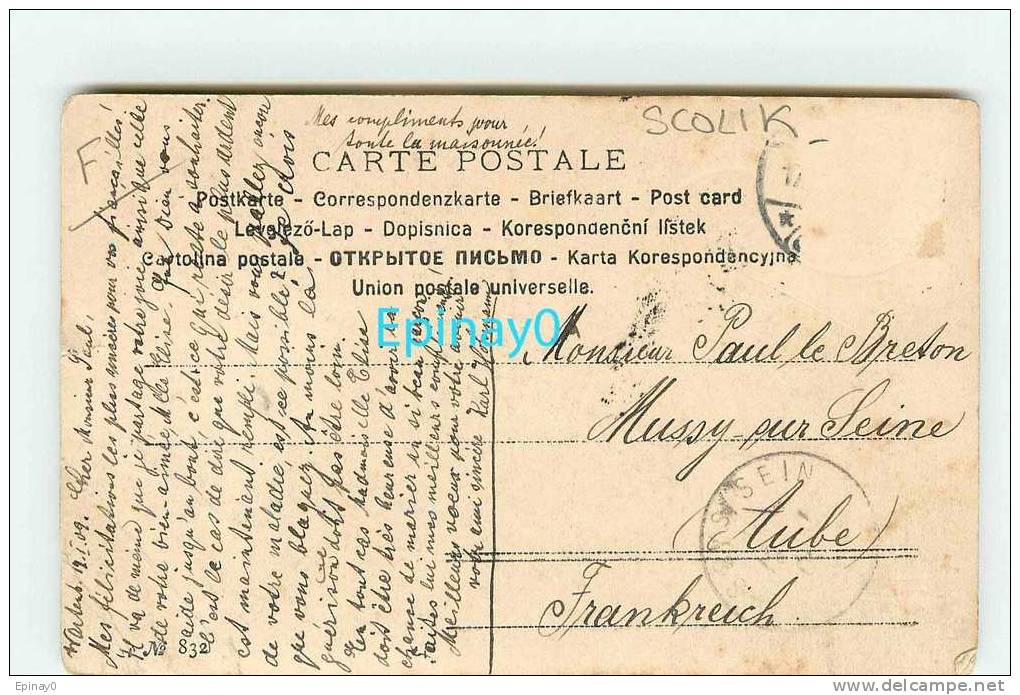 Mes compliments pour
toute la maisonnée!
SCOLIK
F
CARTE POSTALE
Postkarte - Correspondenzkarte - Briefkaart - Post card
Levelező-Lap - Dopisnica - Korespondenční lístek
Cartolina postale - ОТКРЫТОЕ ПИСЬМО - Karta Korespondencyjna
Union postale universelle.
Epinay0
Monsieur Paul le Breton
Mussy-sur Seine
Aube
Frankreich
SUR SEIN
19.1.09. Cher Monsieur Paul,
Mes félicitations les plus sincères pour vos fiançailles!
Il va de même que je partage votre joie ainsi que celle
de votre bien-aimée Melle Claire. Que Dieu vous
aide jusqu'au bout, c'est ce qui reste à souhaiter.
C'est le cas de dire que votre désir le plus ardent
est maintenant rempli. Mais vous parlez encore
de votre maladie, est-ce possible? Je crois
que vous blaguez. Au moins la
guérison ne doit pas être loin.
En tout cas Mademoiselle Elise
doit être très heureuse d'avoir
chance de marier un si beau garçon.
Faites lui mes meilleurs compliments
Meilleurs voeux pour votre avenir
votre ami sincère Karl
No 832
Epinay0
www.delcampe.net